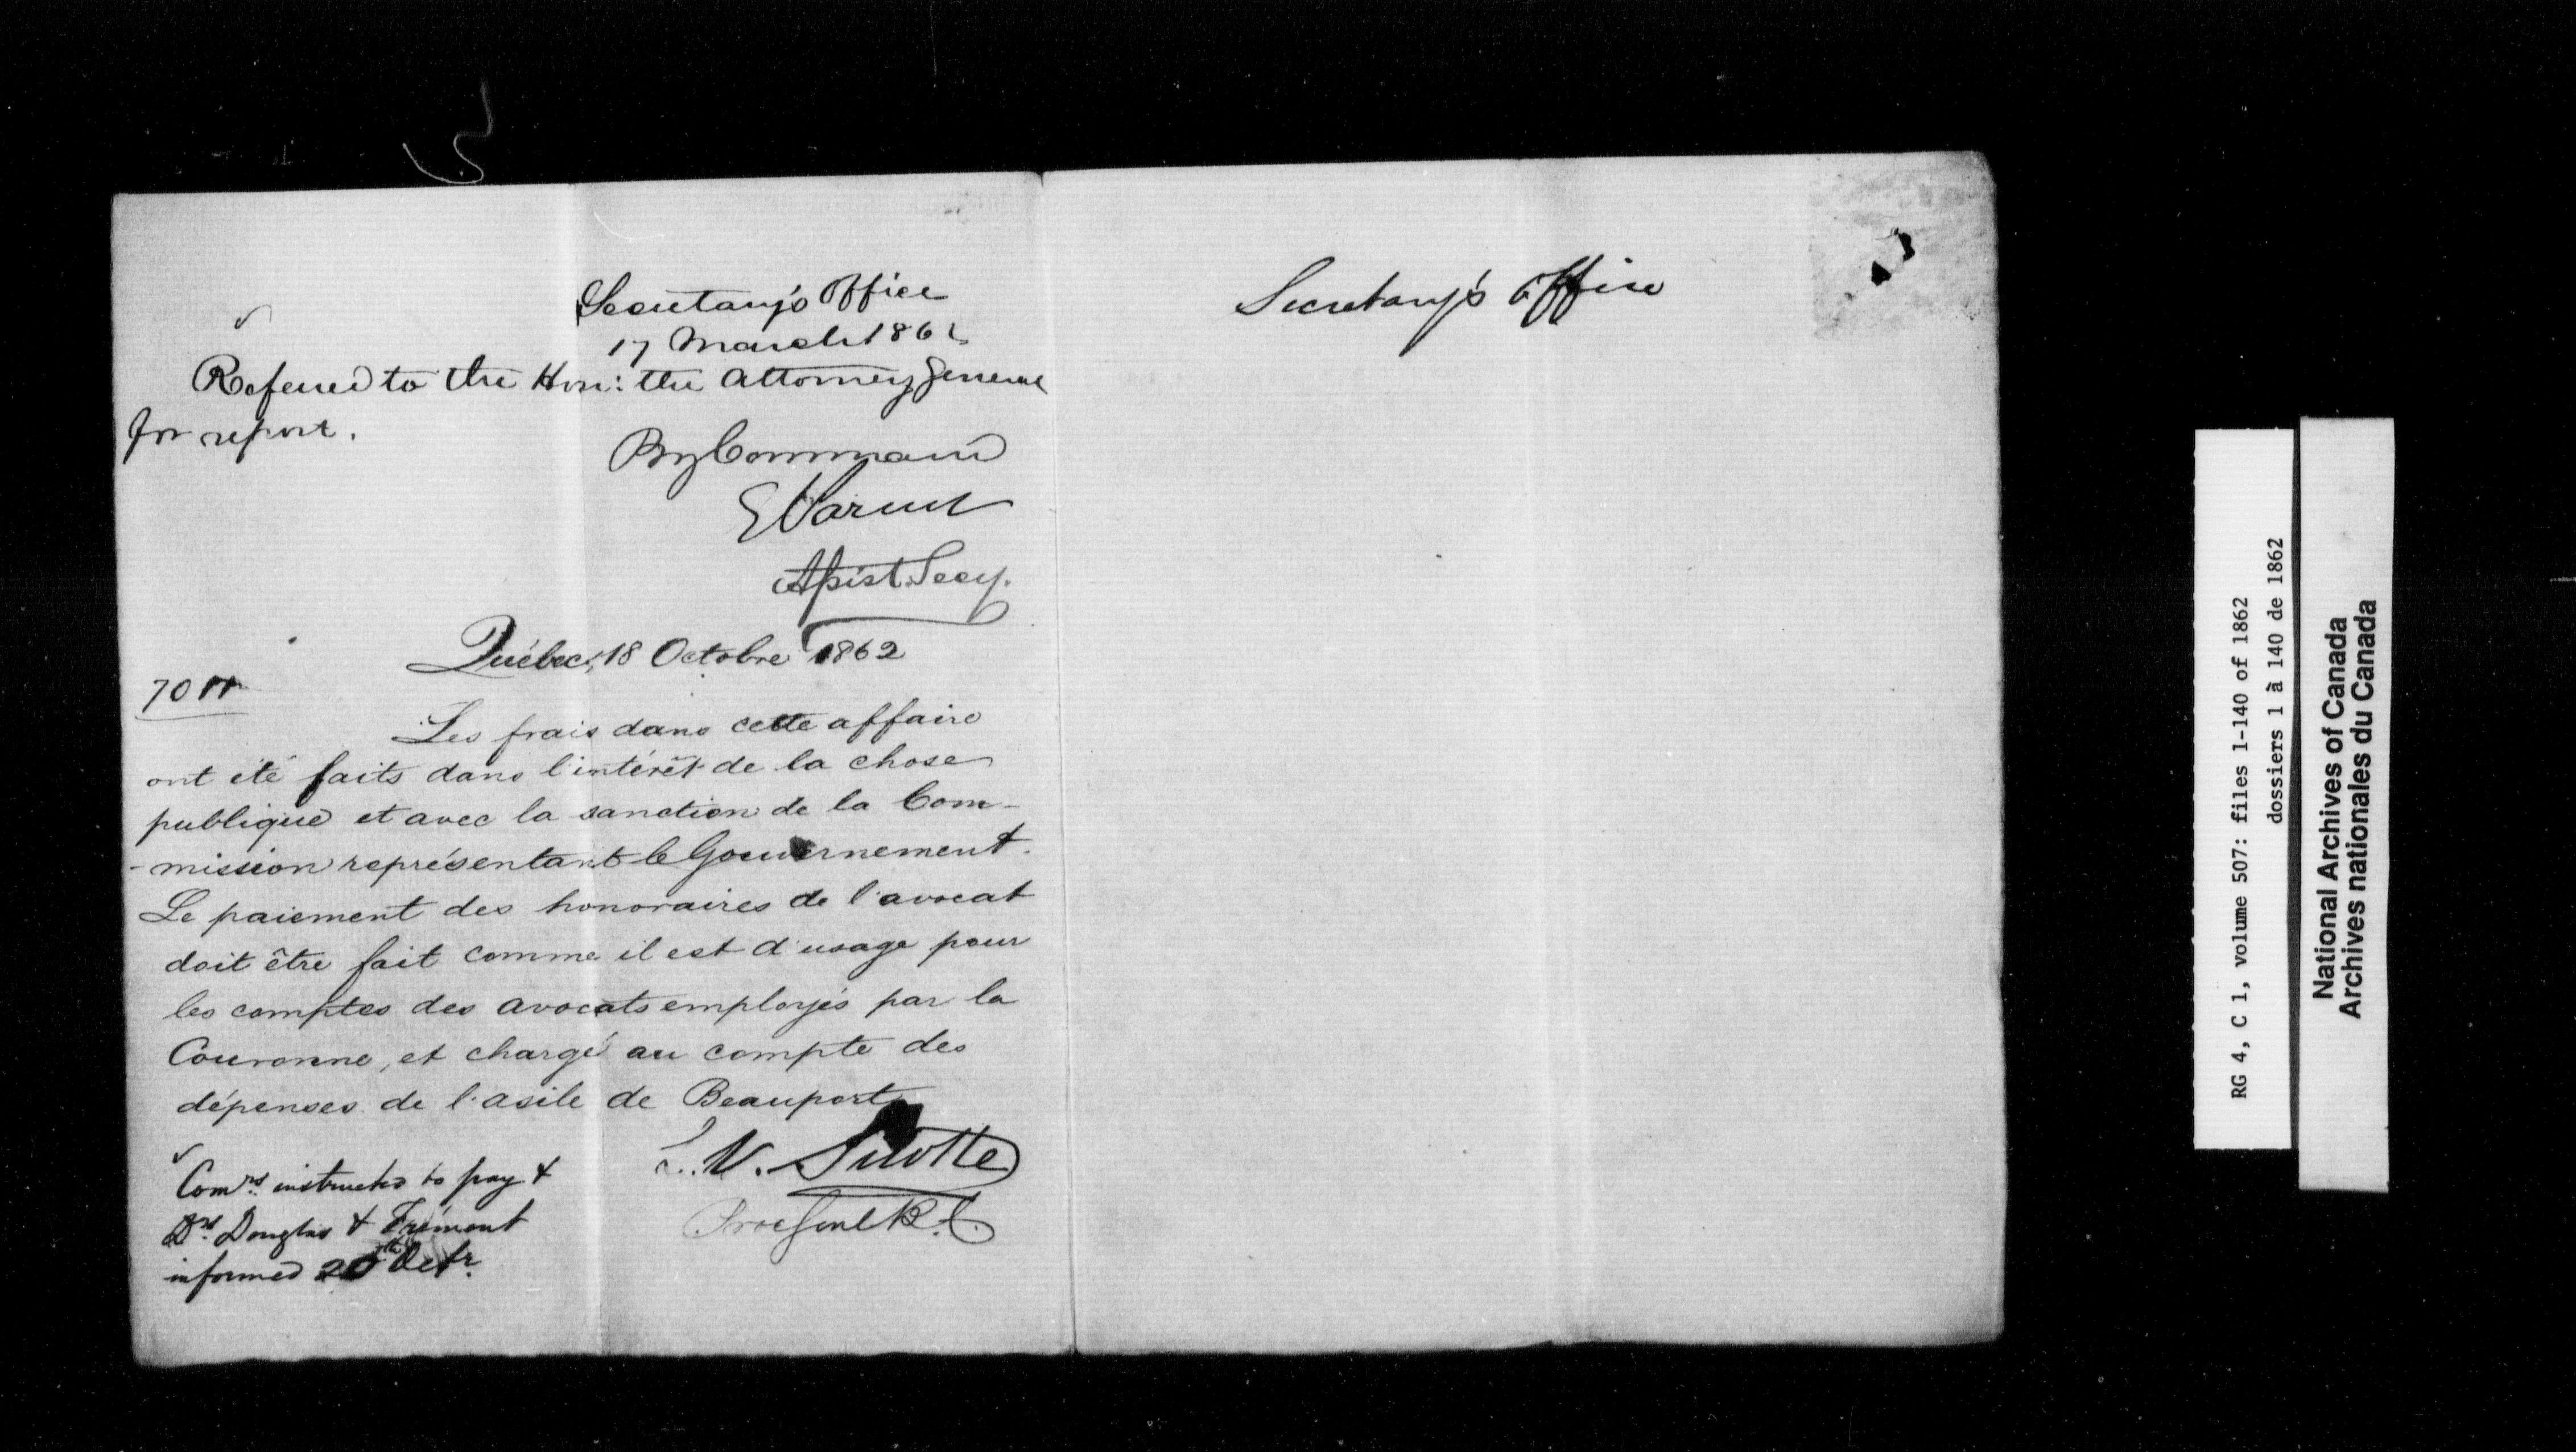 Secretary's Office
17 March 1862
Referred to the Hon: the Attorney General
for report.
By Command
E Parent
Assist. Secy.
Québec, 18 Octobre 1862
70
Les frais dans cette affaire
ont été faits dans l'intérêt de la chose
publique et avec la sanction de la Com-
-mission représentant le Gouvernement.
Le paiement des honoraires de l'avocat
doit être fait comme il est d'usage pour
les comptes des avocats employés par la
Couronne, et chargé au compte des
dépenses de l'asile de Beauport
L. V. Sicotte
Proc Genl B.C.
Comrs. instructed to pay &
Drs. Douglas & Frémont
informed 20th Octr.
Secretary's Office
RG 4, C 1, volume 507: files 1-140 of 1862
dossiers 1 à 140 de 1862
National Archives of Canada
Archives nationales du Canada